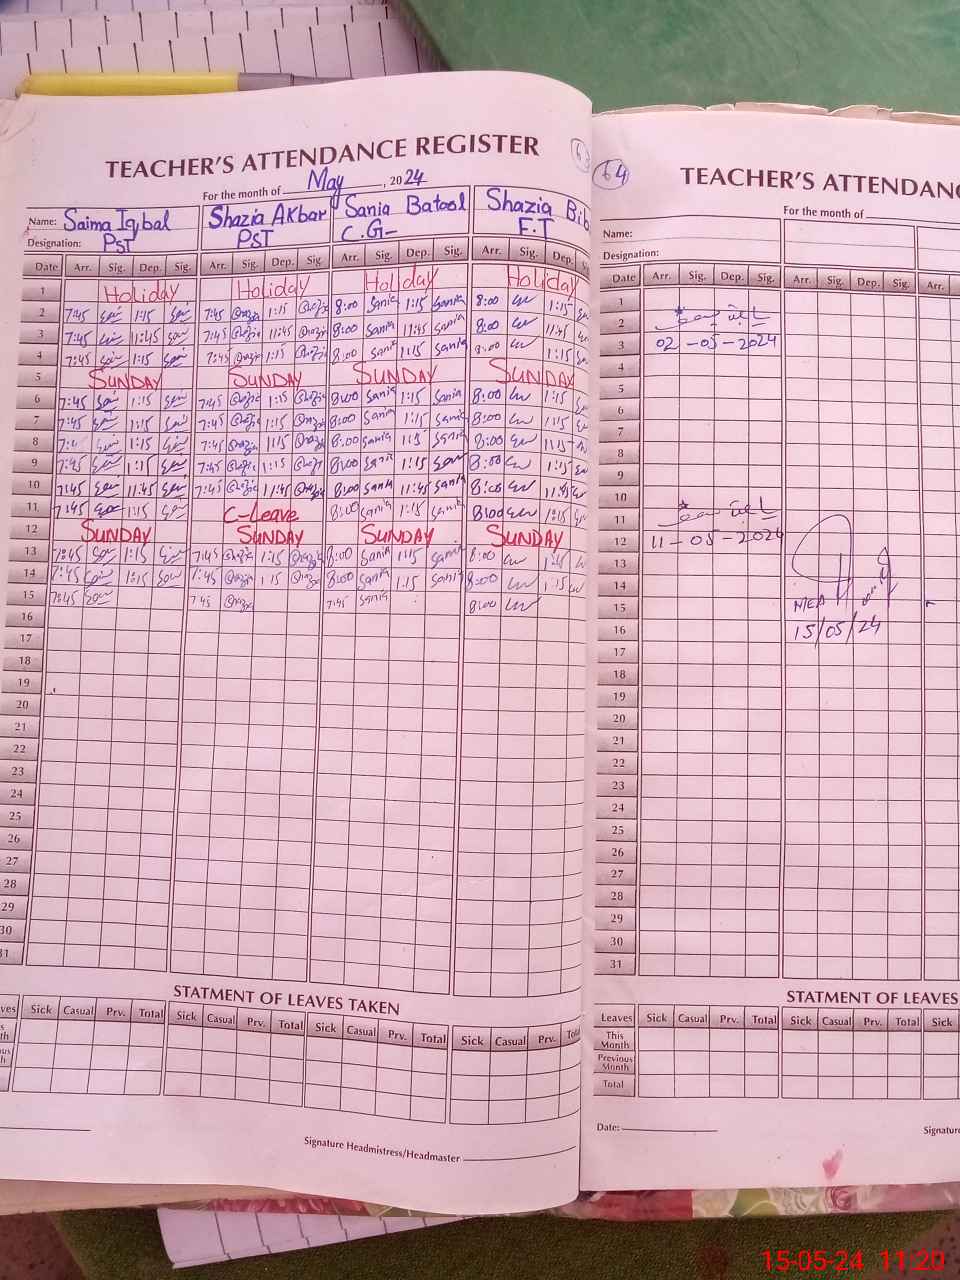 TEACHER'S ATTENDANCE REGISTER
For the month of May, 2024
Name: Saima Iqbal Shazia Akbar Sania Batool Shazia Bib
Designation: PST PST C.G- F.T
Date Arr. Sig. Dep. Sig. Arr. Sig. Dep. Sig. Arr. Sig. Dep. Sig. Arr. Sig. Dep.
1 Holiday Holiday Holiday Holiday
2 7:45 1:15 7:45 1:15 8:00 Sania 1:15 Sania 8:00 1:15
3 7:45 11:45 7:45 11:45 8:00 Sania 11:45 Sania 8:00 11:45
4 7:45 1:15 7:45 1:15 8:00 Sania 1:15 Sania 8:00 1:15
5 SUNDAY SUNDAY SUNDAY SUNDAY
6 7:45 1:15 7:45 1:15 8:00 Sania 1:15 Sania 8:00 1:15
7 7:45 1:15 7:45 1:15 8:00 Sania 1:15 Sania 8:00 1:15
8 1:15 7:45 1:15 8:00 Sania 1:15 Sania 8:00 1:15
9 7:45 1:15 7:45 1:15 8:00 Sania 1:15 8:00 1:15
10 7:45 11:45 7:45 11:45 8:00 Sania 11:45 Sania 8:00 11:45
11 7:45 1:15 C-Leave 8:00 Sania 1:15 Sania 8:00 1:15
12 SUNDAY SUNDAY SUNDAY SUNDAY
13 7:45 1:15 7:45 1:15 8:00 Sania 1:15 Sania 8:00 1:15
14 7:45 1:15 7:45 1:15 8:00 Sania 1:15 Sania 8:00 1:15
15 7:45 7:45 7:45 Sania 8:00
16
17
18
19
20
21
22
23
24
25
26
27
28
29
30
31
STATMENT OF LEAVES TAKEN
ves Sick Casual Prv. Total Sick Casual Prv. Total Sick Casual Prv. Total Sick Casual Prv.
Signature Headmistress/Headmaster
64
TEACHER'S ATTENDANC
For the month of
Name:
Designation:
Date Arr. Sig. Dep. Sig. Arr. Sig. Dep. Sig. Arr.
1
2
3 02-05-2024
4
5
6
7
8
9
10
11
12 11-05-2024
13
14
15 MEA
16 15/05/24
17
18
19
20
21
22
23
24
25
26
27
28
29
30
31
STATMENT OF LEAVES
Leaves Sick Casual Prv. Total Sick Casual Prv. Total Sick
This Month
Previous Month
Total
Date:
Signature
15-05-24 11:20